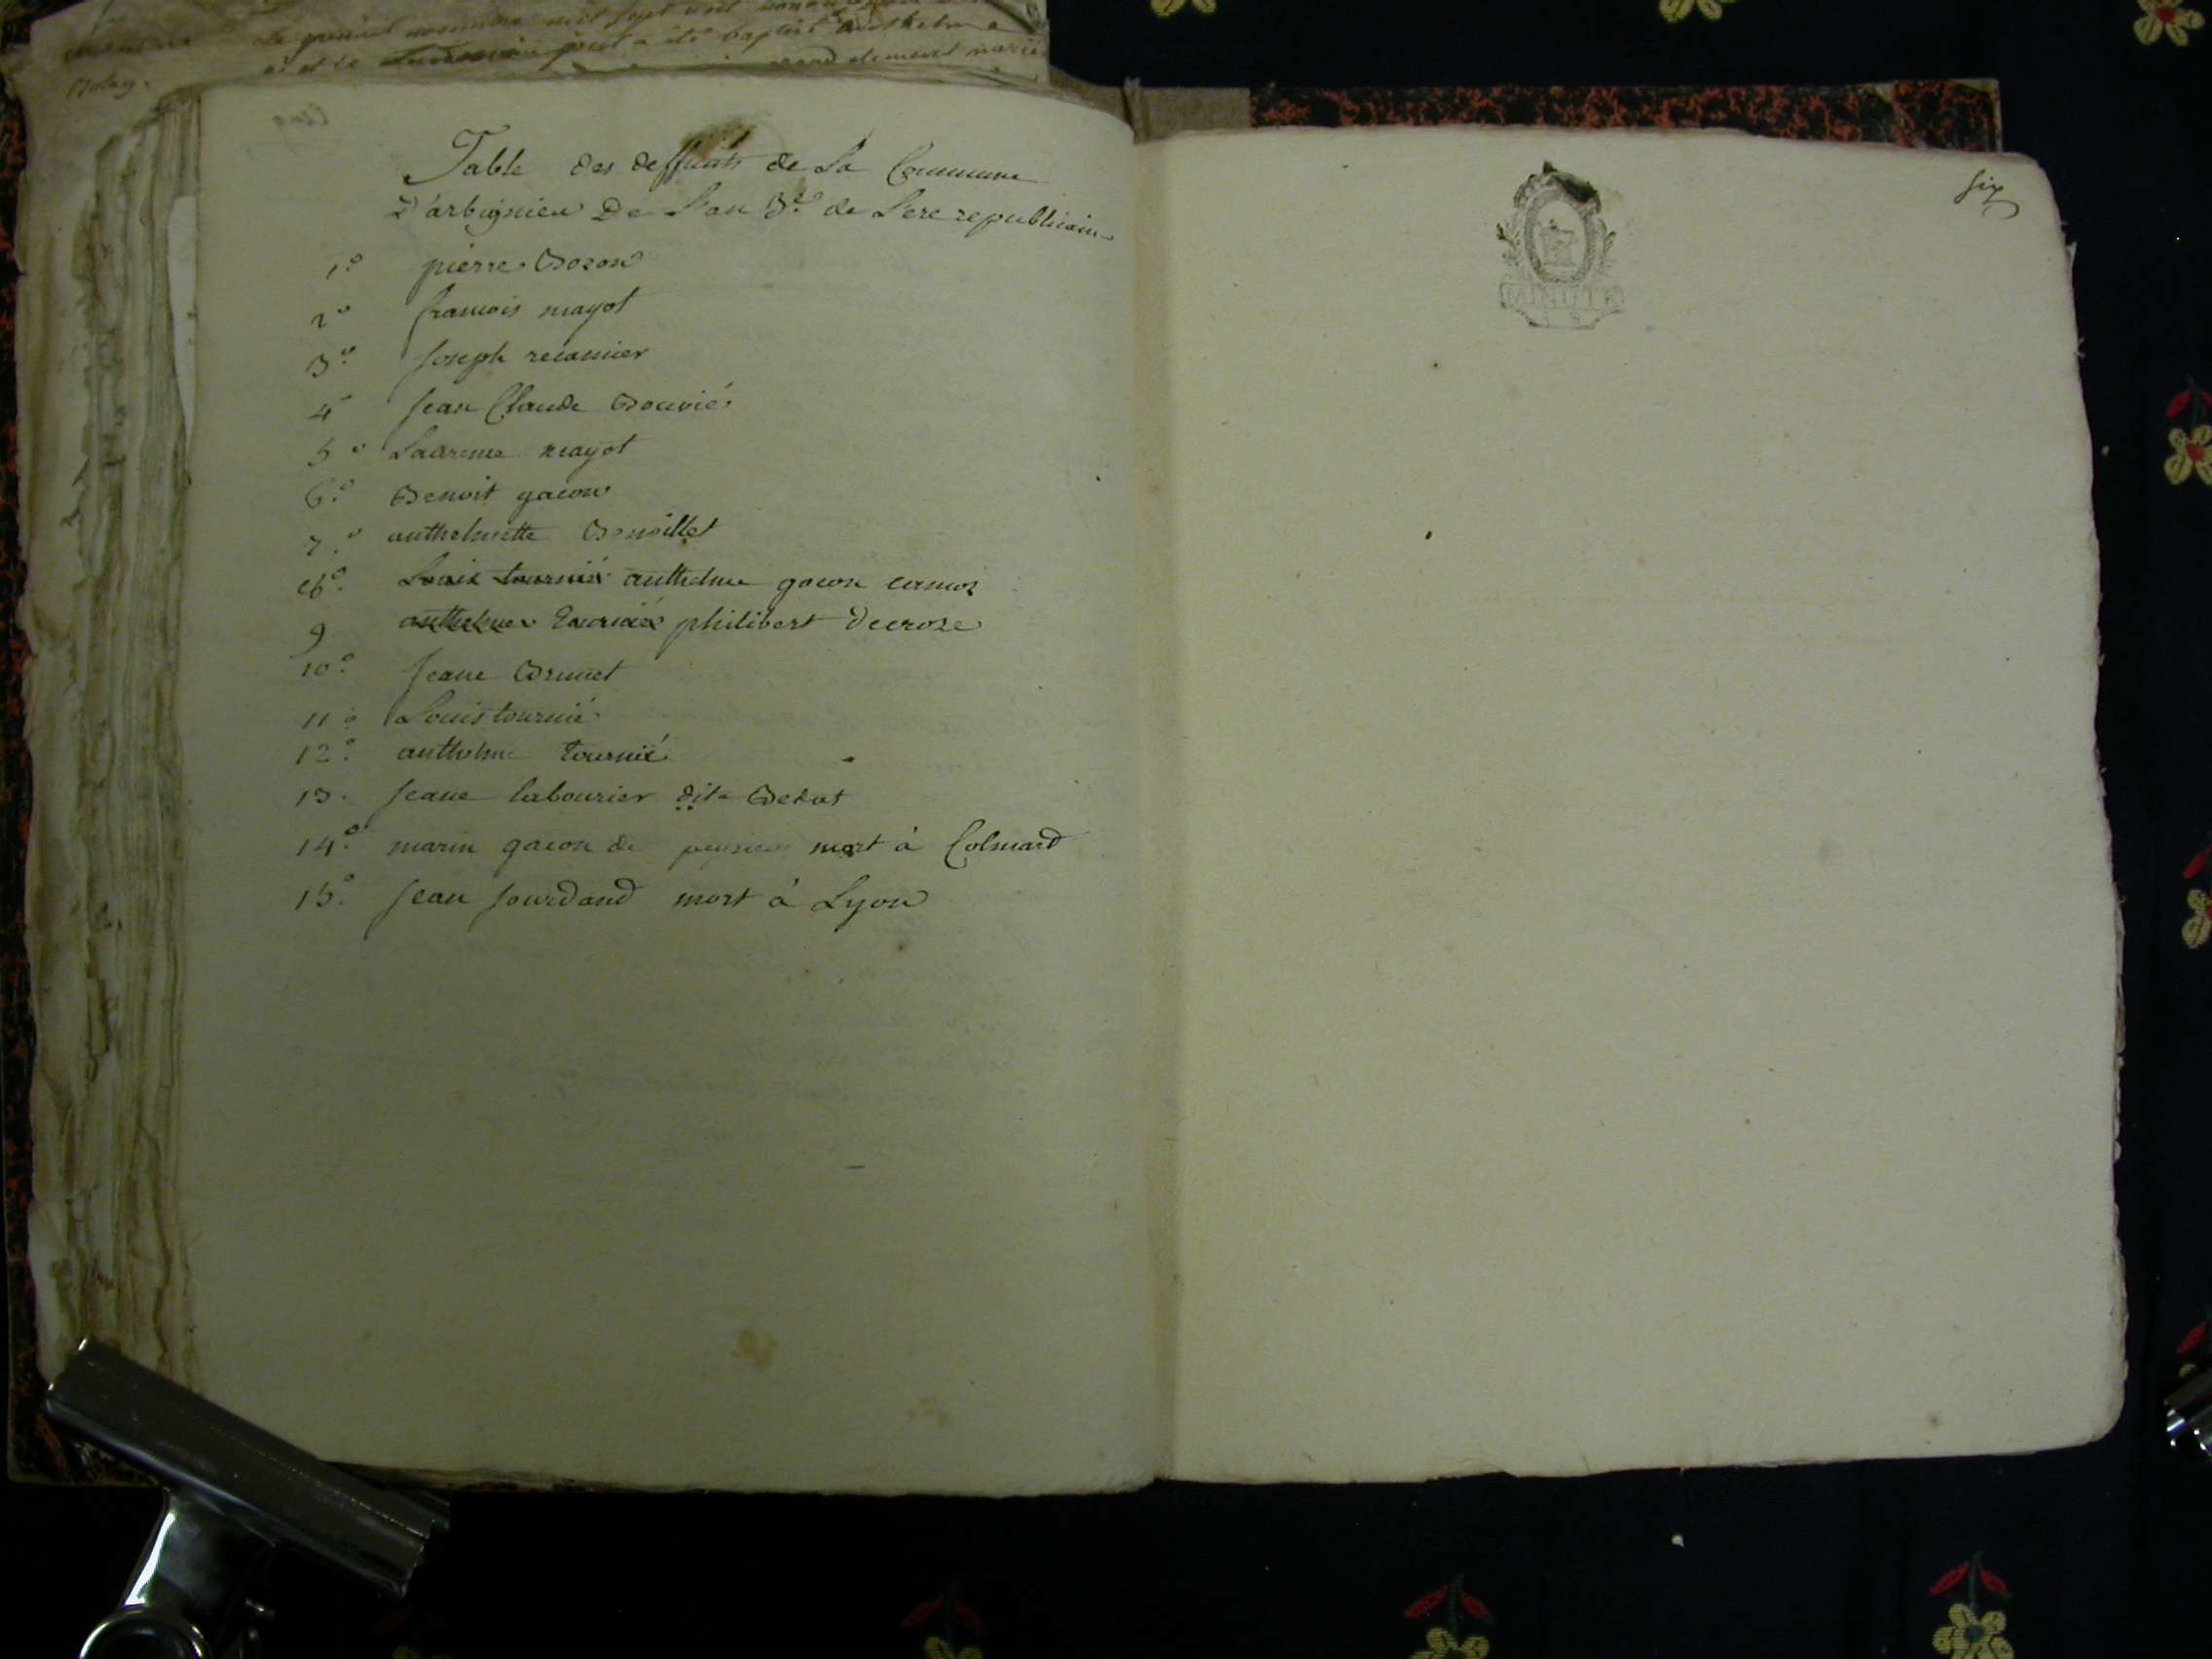 Table des deffunts de La Commune
D'arbignieu De L'an 3e de L'ere republicain
1o pierre Bozon
2o francois mayot
3o Joseph recamier
4 Jean Claude Bouvié
5o Laurence mayot
6o Benoit gacon
7o anthelmette
8o Louis tournié anthelme gacon
9 anthelme tournié philibert decroze
10o Jeane Brunet
11o Louis tournié
12o anthelme tournié
13. Jeane labourier dite
14o marin gacon de peysieu mort à Colmard
15o Jean Jourdand mort à Lyon
six
MINUTE